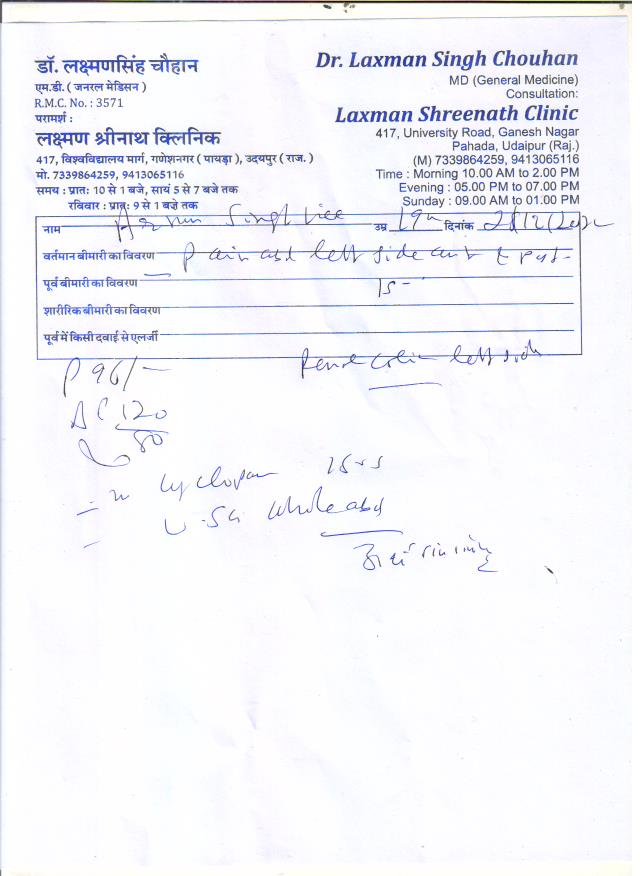 डॉ. लक्ष्मणसिंह चौहान
एम.डी. ( जनरल मेडिसन )
R.M.C. No. : 3571
परामर्श :
लक्ष्मण श्रीनाथ क्लिनिक
417, विश्वविद्यालय मार्ग, गणेशनगर ( पायड़ा ), उदयपुर ( राज. )
मो. 7339864259, 9413065116
समय : प्रातः 10 से 1 बजे, सायं 5 से 7 बजे तक
रविवार : प्रातः 9 से 1 बजे तक
Dr. Laxman Singh Chouhan
MD (General Medicine)
Consultation:
Laxman Shreenath Clinic
417, University Road, Ganesh Nagar
Pahada, Udaipur (Raj.)
(M) 7339864259, 9413065116
Time : Morning 10.00 AM to 2.00 PM
Evening : 05.00 PM to 07.00 PM
Sunday : 09.00 AM to 01.00 PM
नाम Singh उम्र 19 दिनांक
वर्तमान बीमारी का विवरण Pain abd left side
पूर्व बीमारी का विवरण
शारीरिक बीमारी का विवरण
पूर्व में किसी दवाई से एलर्जी
Renal colic left side
P 96/-
120
80
Cyclopam
USG whole abd